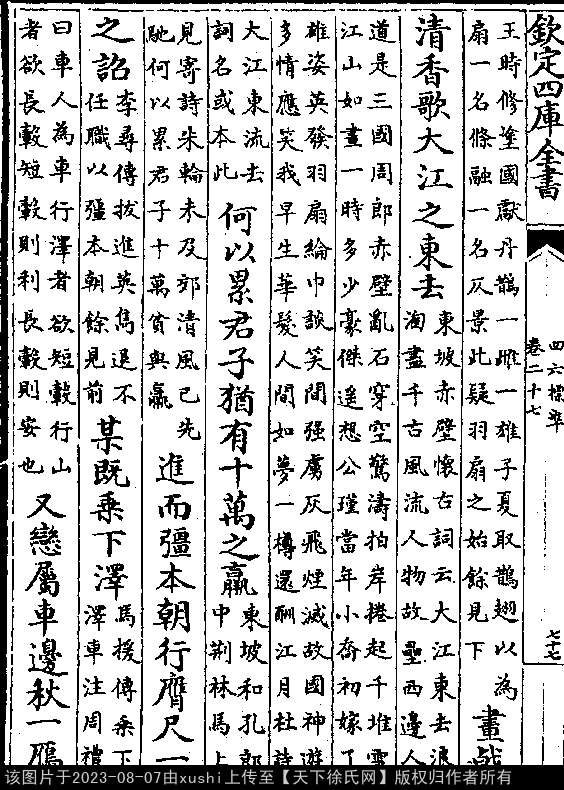 欽定四庫全書
四六標準
卷二十七
七十七
王時修塗國獻丹鵲一雌一雄子夏取鵲翅以為
扇一名條融一名仄景此疑羽扇之始餘見下
畫戟
清香歌大江之東去
東坡赤壁懷古詞云大江東去浪
淘盡千古風流人物故壘西邊人
道是三國周郎赤壁亂石穿空驚濤拍岸捲起千堆雪
江山如畫一時多少豪傑遥想公瑾當年小喬初嫁了
雄姿英發羽扇綸巾談笑間强虜灰飛煙滅故國神遊
多情應笑我早生華髮人間如夢一樽還酹江月杜詩
大江東流去
詞名或本此
何以累君子猶有十萬之贏
東坡和孔郎
中荆林馬上
見寄詩朱輪未及郊清風已先
馳何以累君子十萬貧與羸
進而彊本朝行膺尺一
之詔
李尋傳拔進英雋退不
任職以彊本朝餘見前
某既乗下澤
馬援傳乗下
澤車注周禮
曰車人為車行澤者欲短轂行山
者欲長轂短轂則利長轂則安也
又戀屬車邊秋一鴈
该图片于2023-08-07由xushi上传至【天下徐氏网】版权归作者所有